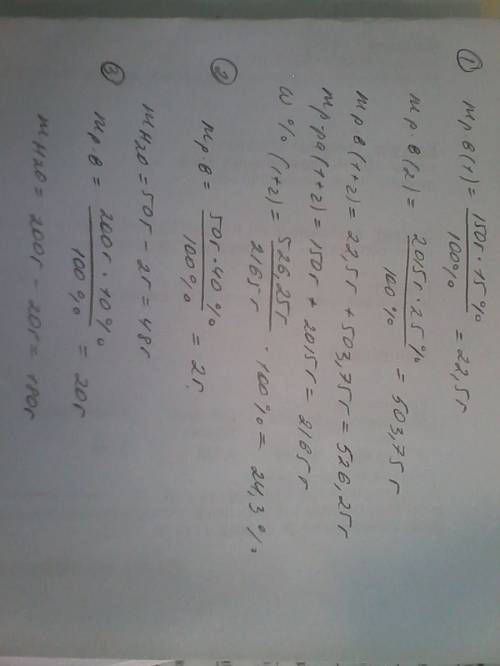 ① m р.в (1) = 150г · 15% / 100% = 22,5г
m р.в (2) = 2015г · 25% / 100% = 503,75г
m р.в (1+2) = 22,5г + 503,75г = 526,25г
m р-ра (1+2) = 150г + 2015г = 2165г
ω% (1+2) = 526,25г / 2165г · 100% = 24,3%
② m р.в = 50г · 40% / 100% = 2г.
mH2O = 50г - 2г = 48г
③ m р.в = 200г · 10% / 100% = 20г
mH2O = 200г - 20г = 180г